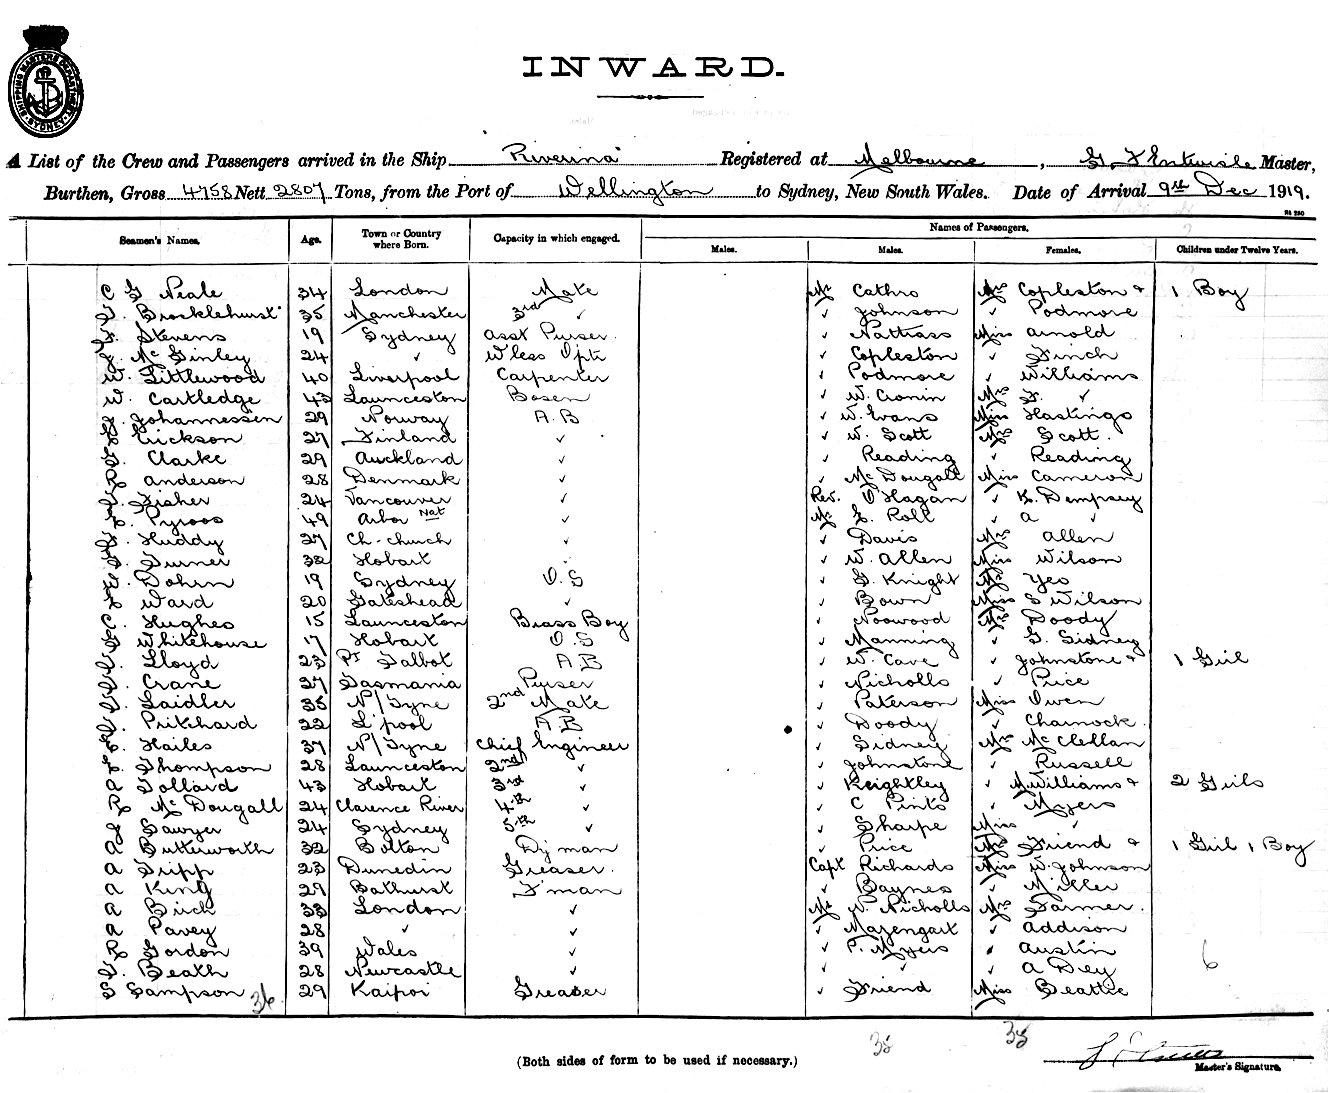 SHIPPING MASTERS DEPARTMENT SYDNEY
INWARD.
A List of the Crew and Passengers arrived in the Ship Riverina Registered at Melbourne, Master,
Burthen, Gross 4758 Nett 2807 Tons, from the Port of Wellington to Sydney, New South Wales. Date of Arrival 9th Dec 1919.
Seamen's Names. Age. Town or Country where Born. Capacity in which engaged. Names of Passengers.
Males. Males. Females. Children under Twelve Years.
C G Neale 34 London Mate Mr Cathro Mrs Copleston + 1 Boy
Brocklehurst 35 Manchester 3rd " " Johnson " Podmore
Stevens 19 Sydney Asst Purser " Nattrass Miss Arnold
McGinley 24 " W'less Optr " Copleston " Finch
W. Littlewood 40 Liverpool Carpenter " Podmore " Williams
W. Cartledge 43 Launceston Bosen " W. Cronin Mrs F. "
Johannessen 29 Norway A.B " W. Evans Miss Hastings
Erickson 27 Finland " " W. Scott Mrs Scott
Clarke 29 Auckland " " Reading " Reading
R Anderson 28 Denmark " " McDougall Miss Cameron
Fisher 24 Vancouver " Rev. O'Hagan " K. Dempsey
Pyroos 49 Nat " Mr Roll " A "
Huddy 27 Ch-church " " Davis Mrs Allen
Turner 32 Hobart " " W. Allen Miss Wilson
Dohrn 19 Sydney O.S " Knight Yes
Ward 20 Gateshead " " Bown Miss Wilson
C. Hughes 15 Launceston Brass Boy " Norwood Mrs Doody
Whitehouse 17 Hobart O.S " Manning " G. Sidney
Lloyd 23 Pt Talbot A B " W. Cave " Johnstone + 1 Girl
Crane 27 Tasmania Purser " Nicholls " Price
Laidler 35 N/Tyne 2nd Mate " Paterson Miss Owen
Pritchard 22 L'pool A B " Doody " Charnock
Hailes 37 N/Tyne Chief Engineer " Sidney Mrs McClellan
Thompson 28 Launceston 2nd " " Johnstone " Russell
A Dollard 43 Hobart 3rd " " Keightley " M. Williams + 2 Girls
R McDougall 24 Clarence River 4th " " C Pirits " Myers
J Sawyer 24 Sydney 5th " " Sharpe Miss "
A Butterworth 32 Bolton Dy man " Price Mrs Friend + 1 Girl 1 Boy
A Tripp 23 Dunedin Greaser Capt Richards Miss W. Johnson
A King 29 Bathurst F'man " Baynes " Miller
A Birch 33 London " Mr W. Nicholls Mrs Farmer
A Pavey 28 " " " Mazengarb " Addison
R Gordon 39 Wales " " P. Myers " Austin
Heath 28 Newcastle " " " " A Dey
S Sampson 29 Kaipoi Greaser " Friend Miss Beattie
36
6
35
35
(Both sides of form to be used if necessary.)
Master's Signature.